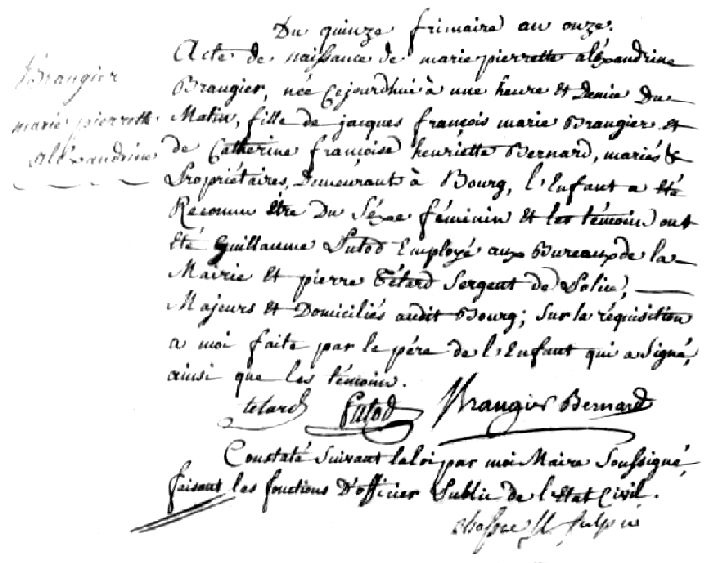 Du quinze frimaire an onze.
Brangier
marie pierrette
alexandrine
Acte de naissance de marie pierrette aléxandrine
Brangier, née Cejourdhui à une heure et Demie Du
Matin, fille de jacques françois marie Brangier et
de Catherine françoise henriette Bernard, mariés &
Propriétaires, Demeurant à Bourg, l'Enfant a été
Reconnu Etre Du Séxe féminin et les témoin ont
été Guillaume Putod Employé aux Bureaux de la
Mairie et pierre Tétard Sergent de Police,
Majeurs et Domiciliés audit Bourg; Sur la réquisition
a moi faite par le pére de l'Enfant qui a Signé,
ainsi que les témoin.
tetard Putod Brangier Bernard
Constaté Suivant la loi par moi Maire Soussigné,
faisant les fonctions D'officier Public de l'Etat Civil.